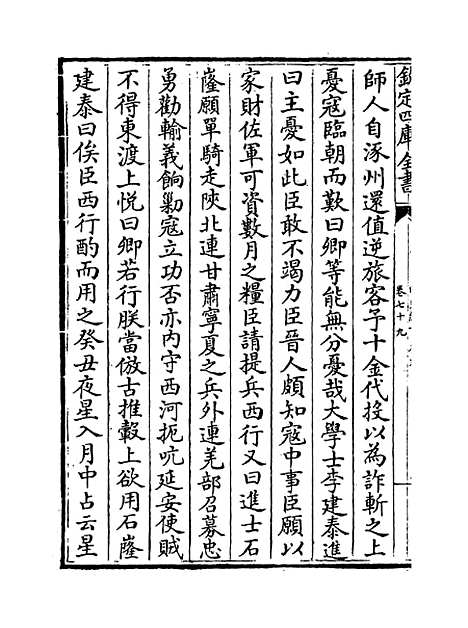 欽定四庫全書
卷七十九
師人自涿州還值逆旅客予十金代投以為詐斬之上
憂寇臨朝而歎曰卿等能無分憂哉大學士李建泰進
曰主憂如此臣敢不竭力臣晉人頗知寇中事臣願以
家財佐軍可資數月之糧臣請提兵西行又曰進士石
㟭願單騎走陜北連甘肅寧夏之兵外連羌部召募忠
勇勸輸義餉勦寇立功否亦内守西河扼吭延安使賊
不得東渡上悅曰卿若行朕當倣古推轂上欲用石㟭
建泰曰俟臣西行酌而用之癸丑夜星入月中占云星